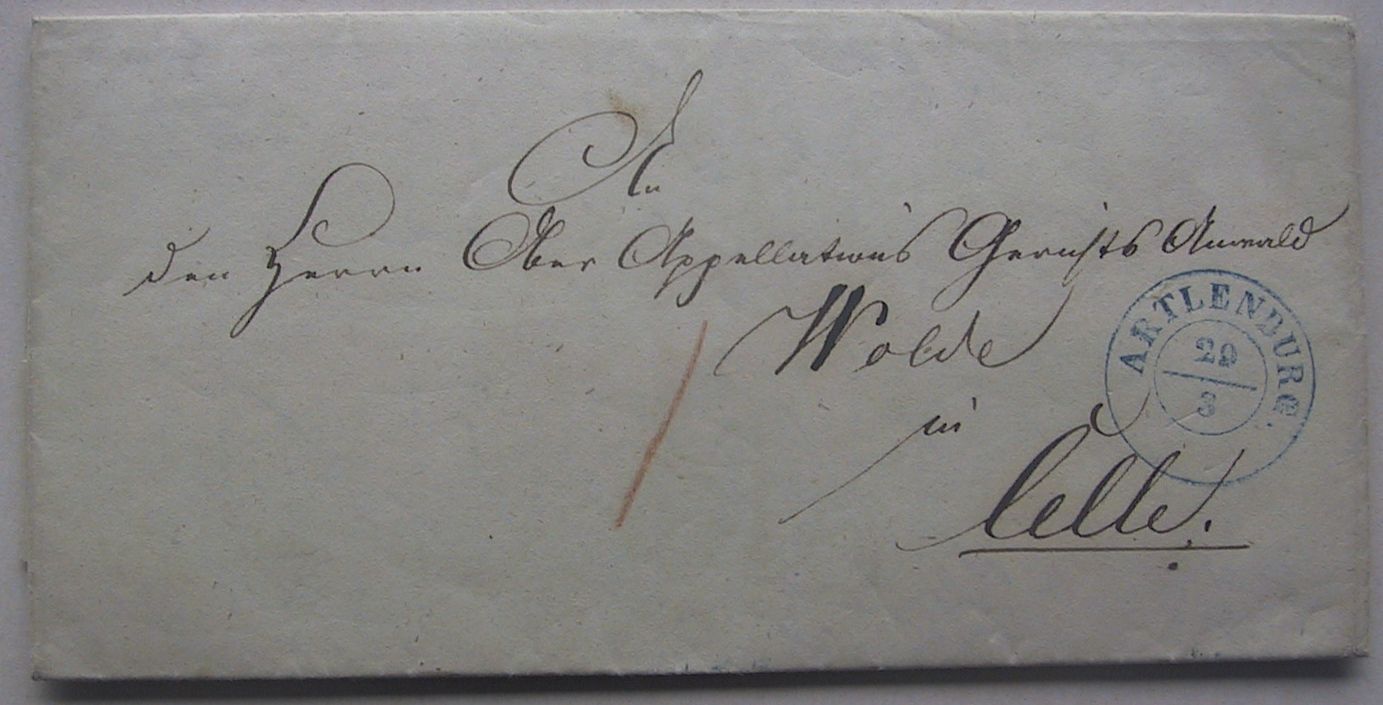 An
den Herrn Ober Appellations Gerichts Anwald
Wolde
in
Celle.
ARTLENBURG.
29
3